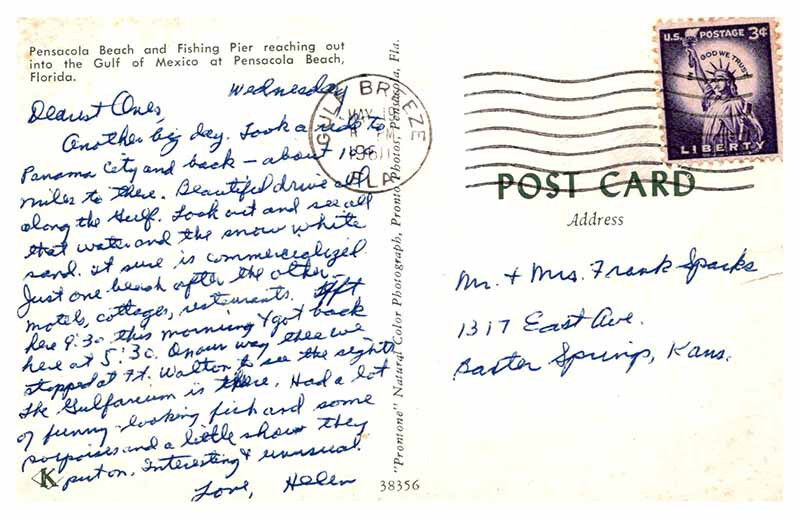 Pensacola Beach and Fishing Pier reaching out
into the Gulf of Mexico at Pensacola Beach,
Florida.
Wednesday
Dearest Ones,
Another big day. Took a ride to
Panama City and back — about 110
miles to there. Beautiful drive all
along the Gulf. Look out and see all
that water and the snow white
sand. It sure is commercialized.
Just one beach after the other —
motels, cottages, restaurants. Left
here 9:30 this morning & got back
here at 5:30. On our way there we
stopped at Ft. Walton to see the sights
The Gulfarium is there. Had a lot
of funny looking fish and some
porpoises and a little show they
put on. Interesting & unusual.
Love, Helen
K
38356
"Promone" Natural Color Photograph, Pronto Photos, Pensacola, Fla.
GULF BREEZE
MAY
1961
FLA.
U.S. POSTAGE 3¢
IN GOD WE TRUST
LIBERTY
POST CARD
Address
Mr. & Mrs. Frank Sparks
1317 East Ave.
Baxter Springs, Kans.